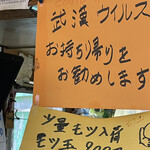 武漢ウイルス
お持ち帰りを
お勧めします
少量モツ入荷
モツ玉 900円